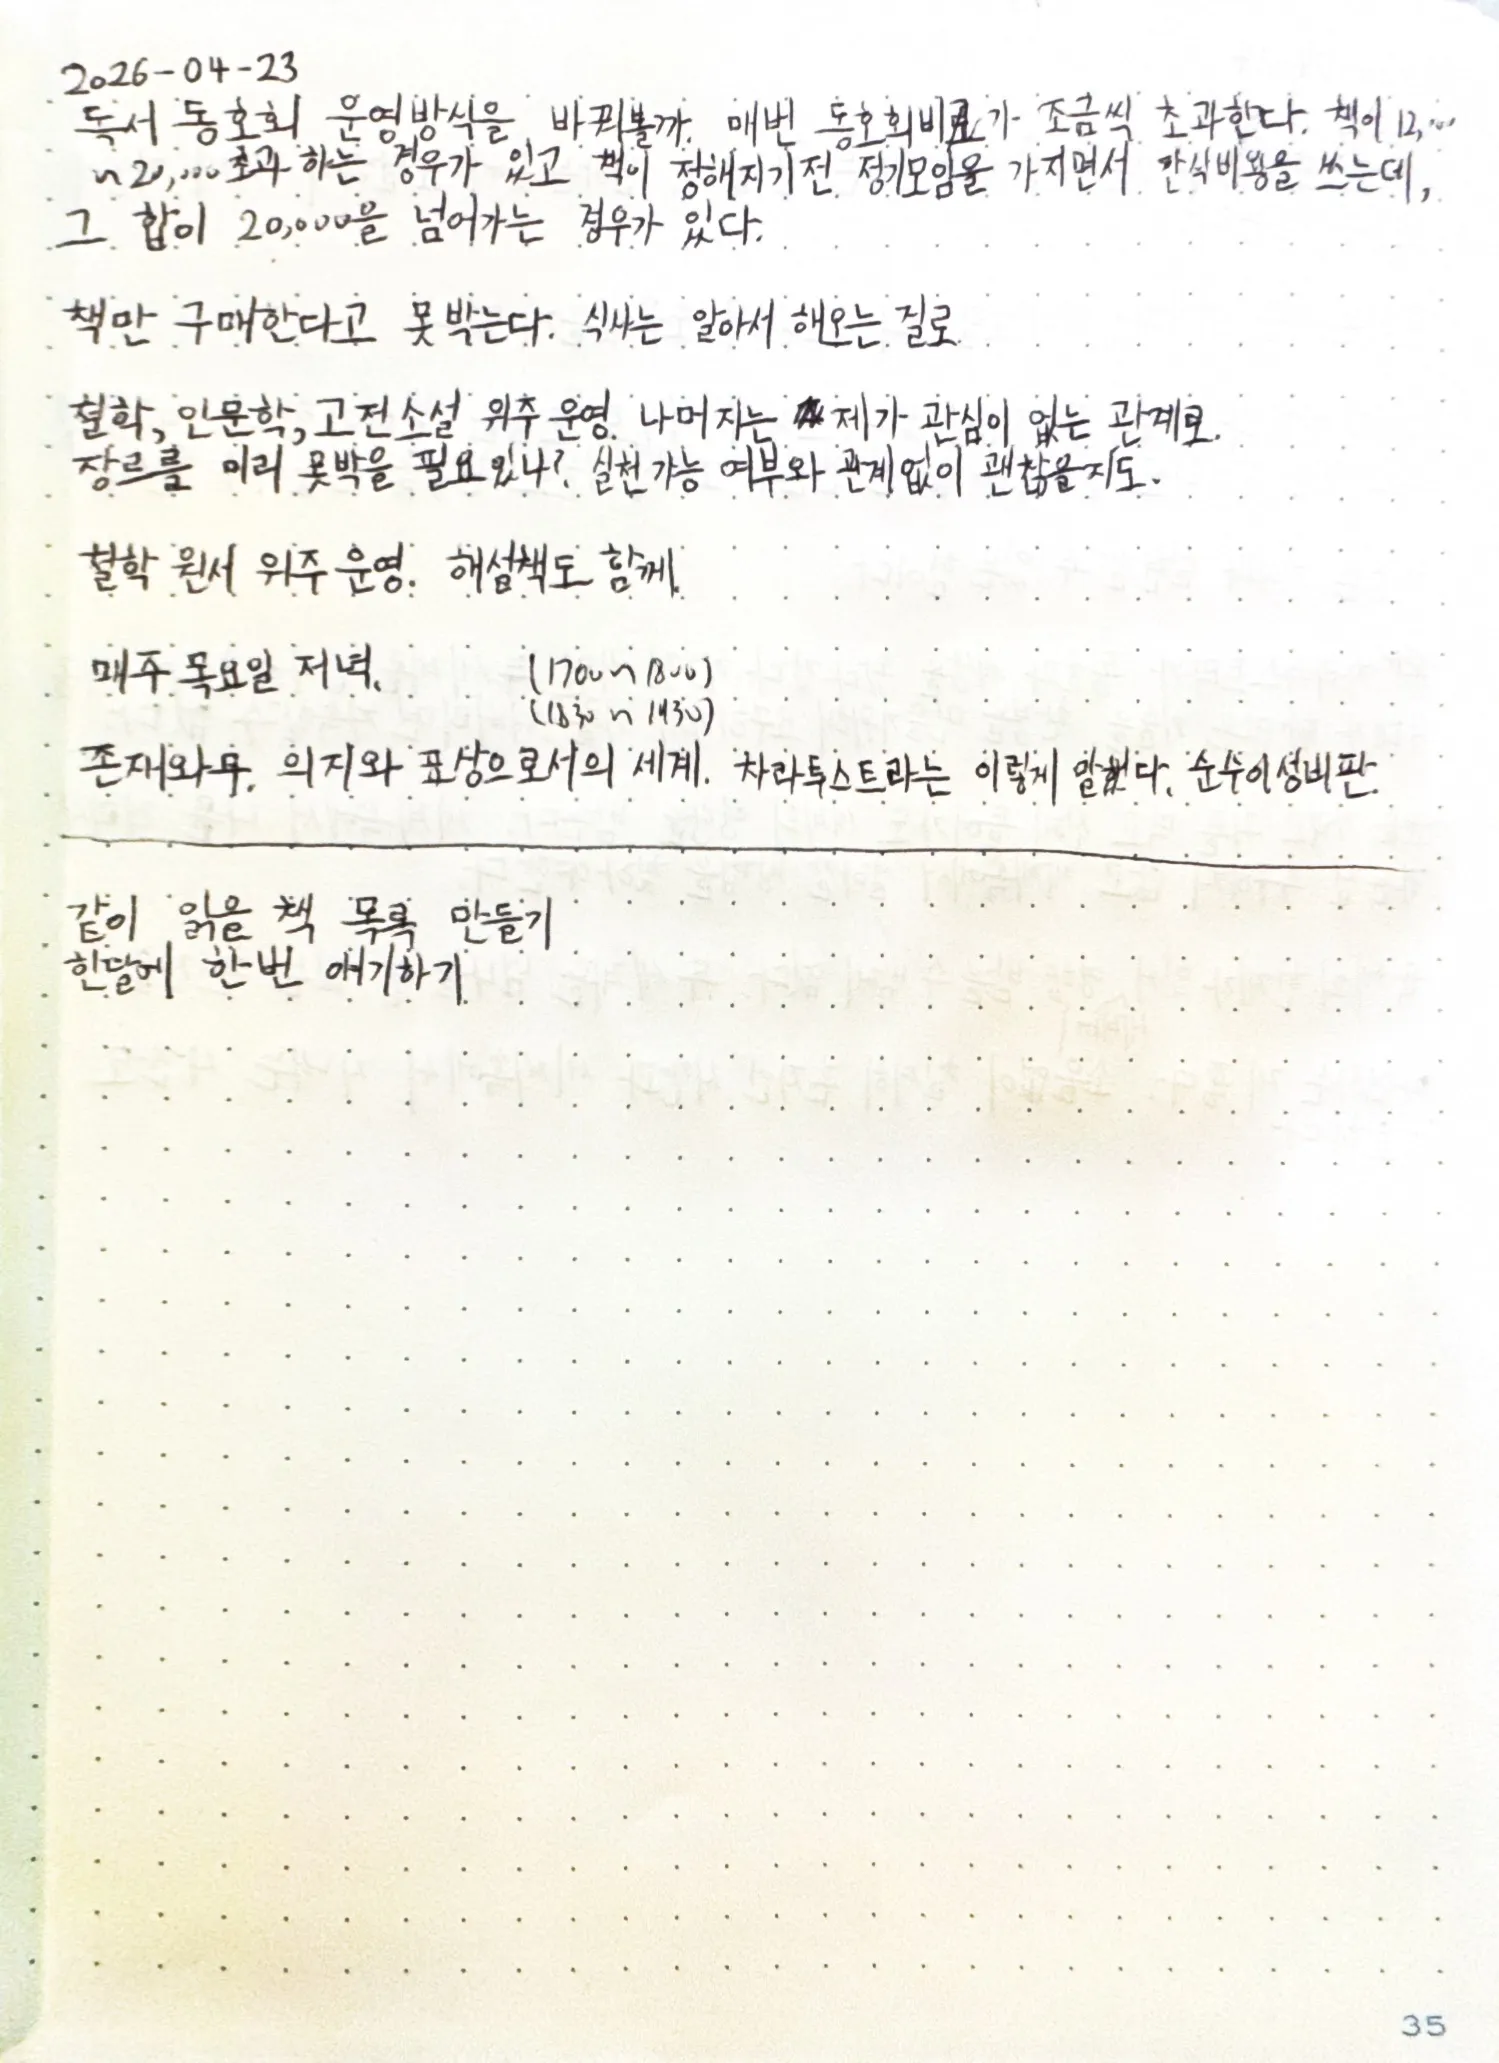 2026-04-23
독서 동호회 운영방식을 바꿔볼까. 매번 동호회비가 조금씩 초과한다. 책이 12,000
~20,000 초과 하는 경우가 있고 책이 정해지기전 정기모임을 가지면서 간식비용을 쓰는데,
그 합이 20,000을 넘어가는 경우가 있다.
책만 구매한다고 못 박는다. 식사는 알아서 해오는 걸로
철학, 인문학, 고전소설 위주 운영. 나머지는 제가 관심이 없는 관계로.
장르를 미리 못박을 필요있나? 실천가능 여부와 관계없이 괜찮을지도.
철학 원서 위주 운영. 해설책도 함께.
매주 목요일 저녁. (1700~1800)
(1830~1930)
존재와무. 의지와 표상으로서의 세계. 차라투스트라는 이렇게 말했다. 순수이성비판.
같이 읽을 책 목록 만들기
한달에 한번 얘기하기
35